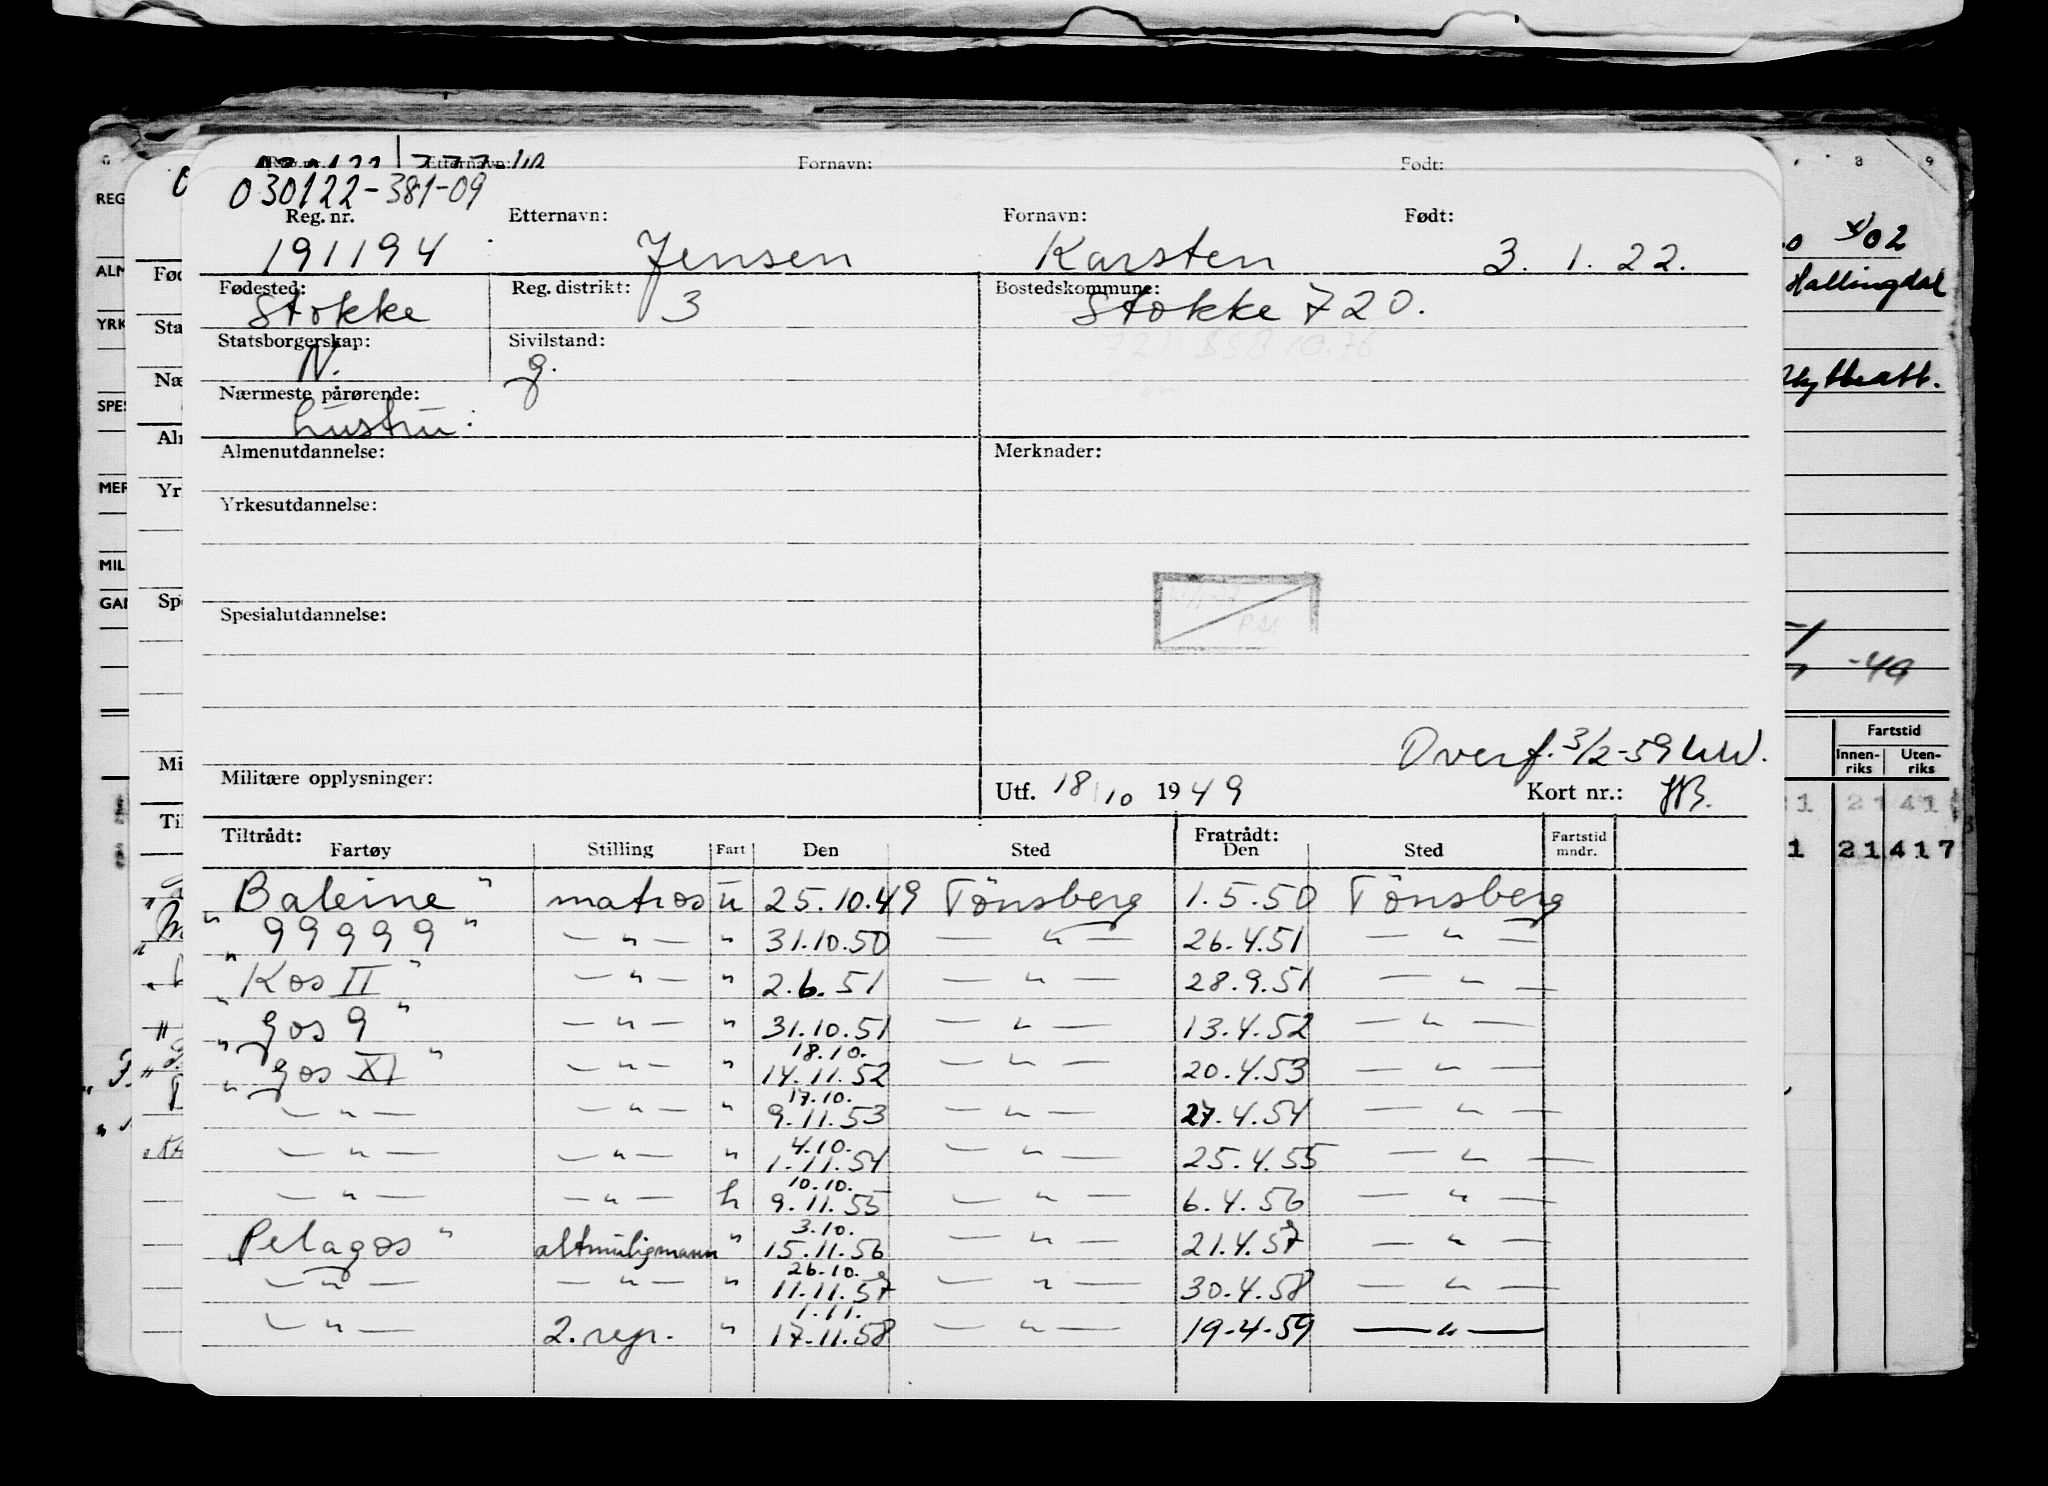 Fornavn: Født:
030122-381-09
Reg. nr. Etternavn: Fornavn: Født:
191194 Jensen Karsten 3. 1. 22.
Fødested: Reg. distrikt: Bostedskommune:
Stokke 3 Stokke 720.
Statsborgerskap: Sivilstand:
N. g.
Nærmeste pårørende:
hustru:
Almenutdannelse: Merknader:
Yrkesutdannelse:
Spesialutdannelse:
Overf. 3/2-59
Militære opplysninger: Utf. 18/10 1949 Kort nr.: HB.
Tiltrådt: Fratrådt: Fartstid
Fartøy Stilling Fart Den Sted Den Sted mndr.
Baleine" matros u 25.10.49 Tönsberg 1.5.50 Tönsberg
" 99999 " — " — " 31.10.50 — " — 26.4.51 — " —
" Kos II " — " — " 2.6.51 — " — 28.9.51 — " —
" Gos 9 " — " — " 31.10.51 — " — 13.4.52 — " —
18.10.
" Gos XI " — " — " 14.11.52 — " — 20.4.53 — " —
17.10.
" — " — — " — " 9.11.53 — " — 27.4.54 — " —
4.10.
— " — — " — " 1.11.54 — " — 25.4.55 — " —
10.10.
— " — — " — h 9.11.55 — " — 6.4.56 — " —
3.10.
Pelagos " altmuligmann " 15.11.56 — " — 21.4.57 — " —
26.10.
— " — — " — " 11.11.57 — " — 30.4.58 — " —
1.11.
— " — 2. repr. " 17.11.58 — " — 19-4-59 — " —
8 9
02
Hallingdal
-49
Fartstid
Innen-riks Uten-riks
1 21 41
1 21 417
REG
ALM
YRK
SPES
MER
MIL
GAR
Fød
Sta
Næ
Alm
Yr
Spe
Mi
Til